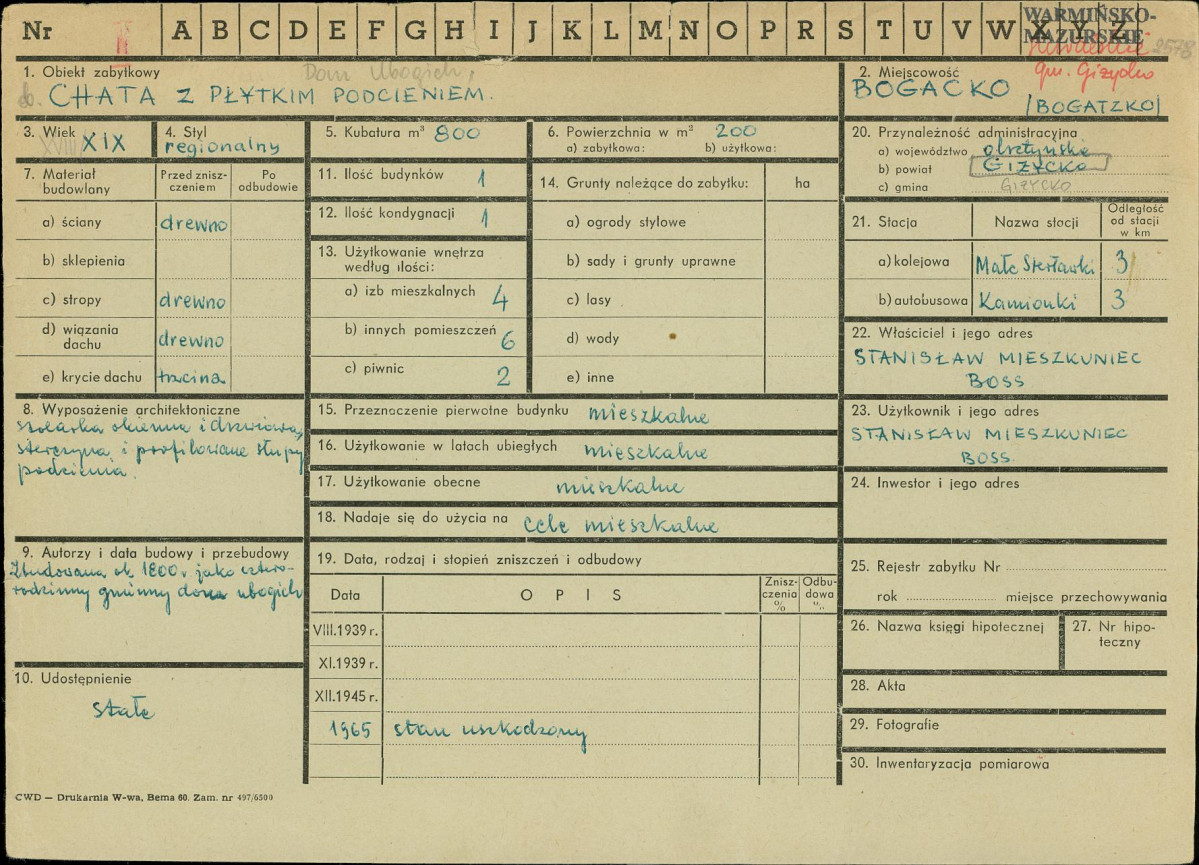 Nr II A B C D E F G H I J K L M N O P R S T U V W X Y Z
WARMIŃSKO-
MAZURSKIE
2578
gm. Giżycko
1. Obiekt zabytkowy
Dom Ubogich,
CHATA Z PŁYTKIM PODCIENIEM.
2. Miejscowość
BOGACKO
/BOGATZKO/
3. Wiek
XVIII/ XIX
4. Styl
regionalny
5. Kubatura m³ 800
6. Powierzchnia w m² 200
a) zabytkowa: b) użytkowa:
7. Materiał budowlany
Przed znisz-
czeniem
Po
odbudowie
a) ściany drewno
b) sklepienia
c) stropy drewno
d) wiązania
dachu drewno
e) krycie dachu trzcina
8. Wyposażenie architektoniczne
stolarka okienna i drzwiowa,
sterczyna i profilowane słupy
podcienia.
9. Autorzy i data budowy i przebudowy
Zbudowana ok 1800 r jako cztero-
rodzinny gminny dom ubogich
10. Udostępnienie
stałe
11. Ilość budynków 1
12. Ilość kondygnacji 1
13. Użytkowanie wnętrza
według ilości:
a) izb mieszkalnych 4
b) innych pomieszczeń 6
c) piwnic 2
14. Grunty należące do zabytku: ha
a) ogrody stylowe
b) sady i grunty uprawne
c) lasy
d) wody
e) inne
15. Przeznaczenie pierwotne budynku mieszkalne
16. Użytkowanie w latach ubiegłych mieszkalne
17. Użytkowanie obecne mieszkalne
18. Nadaje się do użycia na cele mieszkalne
19. Data, rodzaj i stopień zniszczeń i odbudowy
Data
O P I S
Znisz-
czenia
%
Odbu-
dowa
%
VIII.1939 r.
XI.1939 r.
XII.1945 r.
1965 stan uszkodzony
20. Przynależność administracyjna
a) województwo olsztyńskie
b) powiat GIŻYCKO
c) gmina GIŻYCKO
21. Stacja
Nazwa stacji
Odległość
od stacji
w km
a) kolejowa Małe Sterławki 3
b) autobusowa Kamionki 3
22. Właściciel i jego adres
STANISŁAW MIESZKUNIEC
BOSS
23. Użytkownik i jego adres
STANISŁAW MIESZKUNIEC
BOSS
24. Inwestor i jego adres
25. Rejestr zabytku Nr
rok miejsce przechowywania
26. Nazwa księgi hipotecznej
27. Nr hipo-
teczny
28. Akta
29. Fotografie
30. Inwentaryzacja pomiarowa
CWD — Drukarnia W-wa, Bema 60. Zam. nr 497/6500